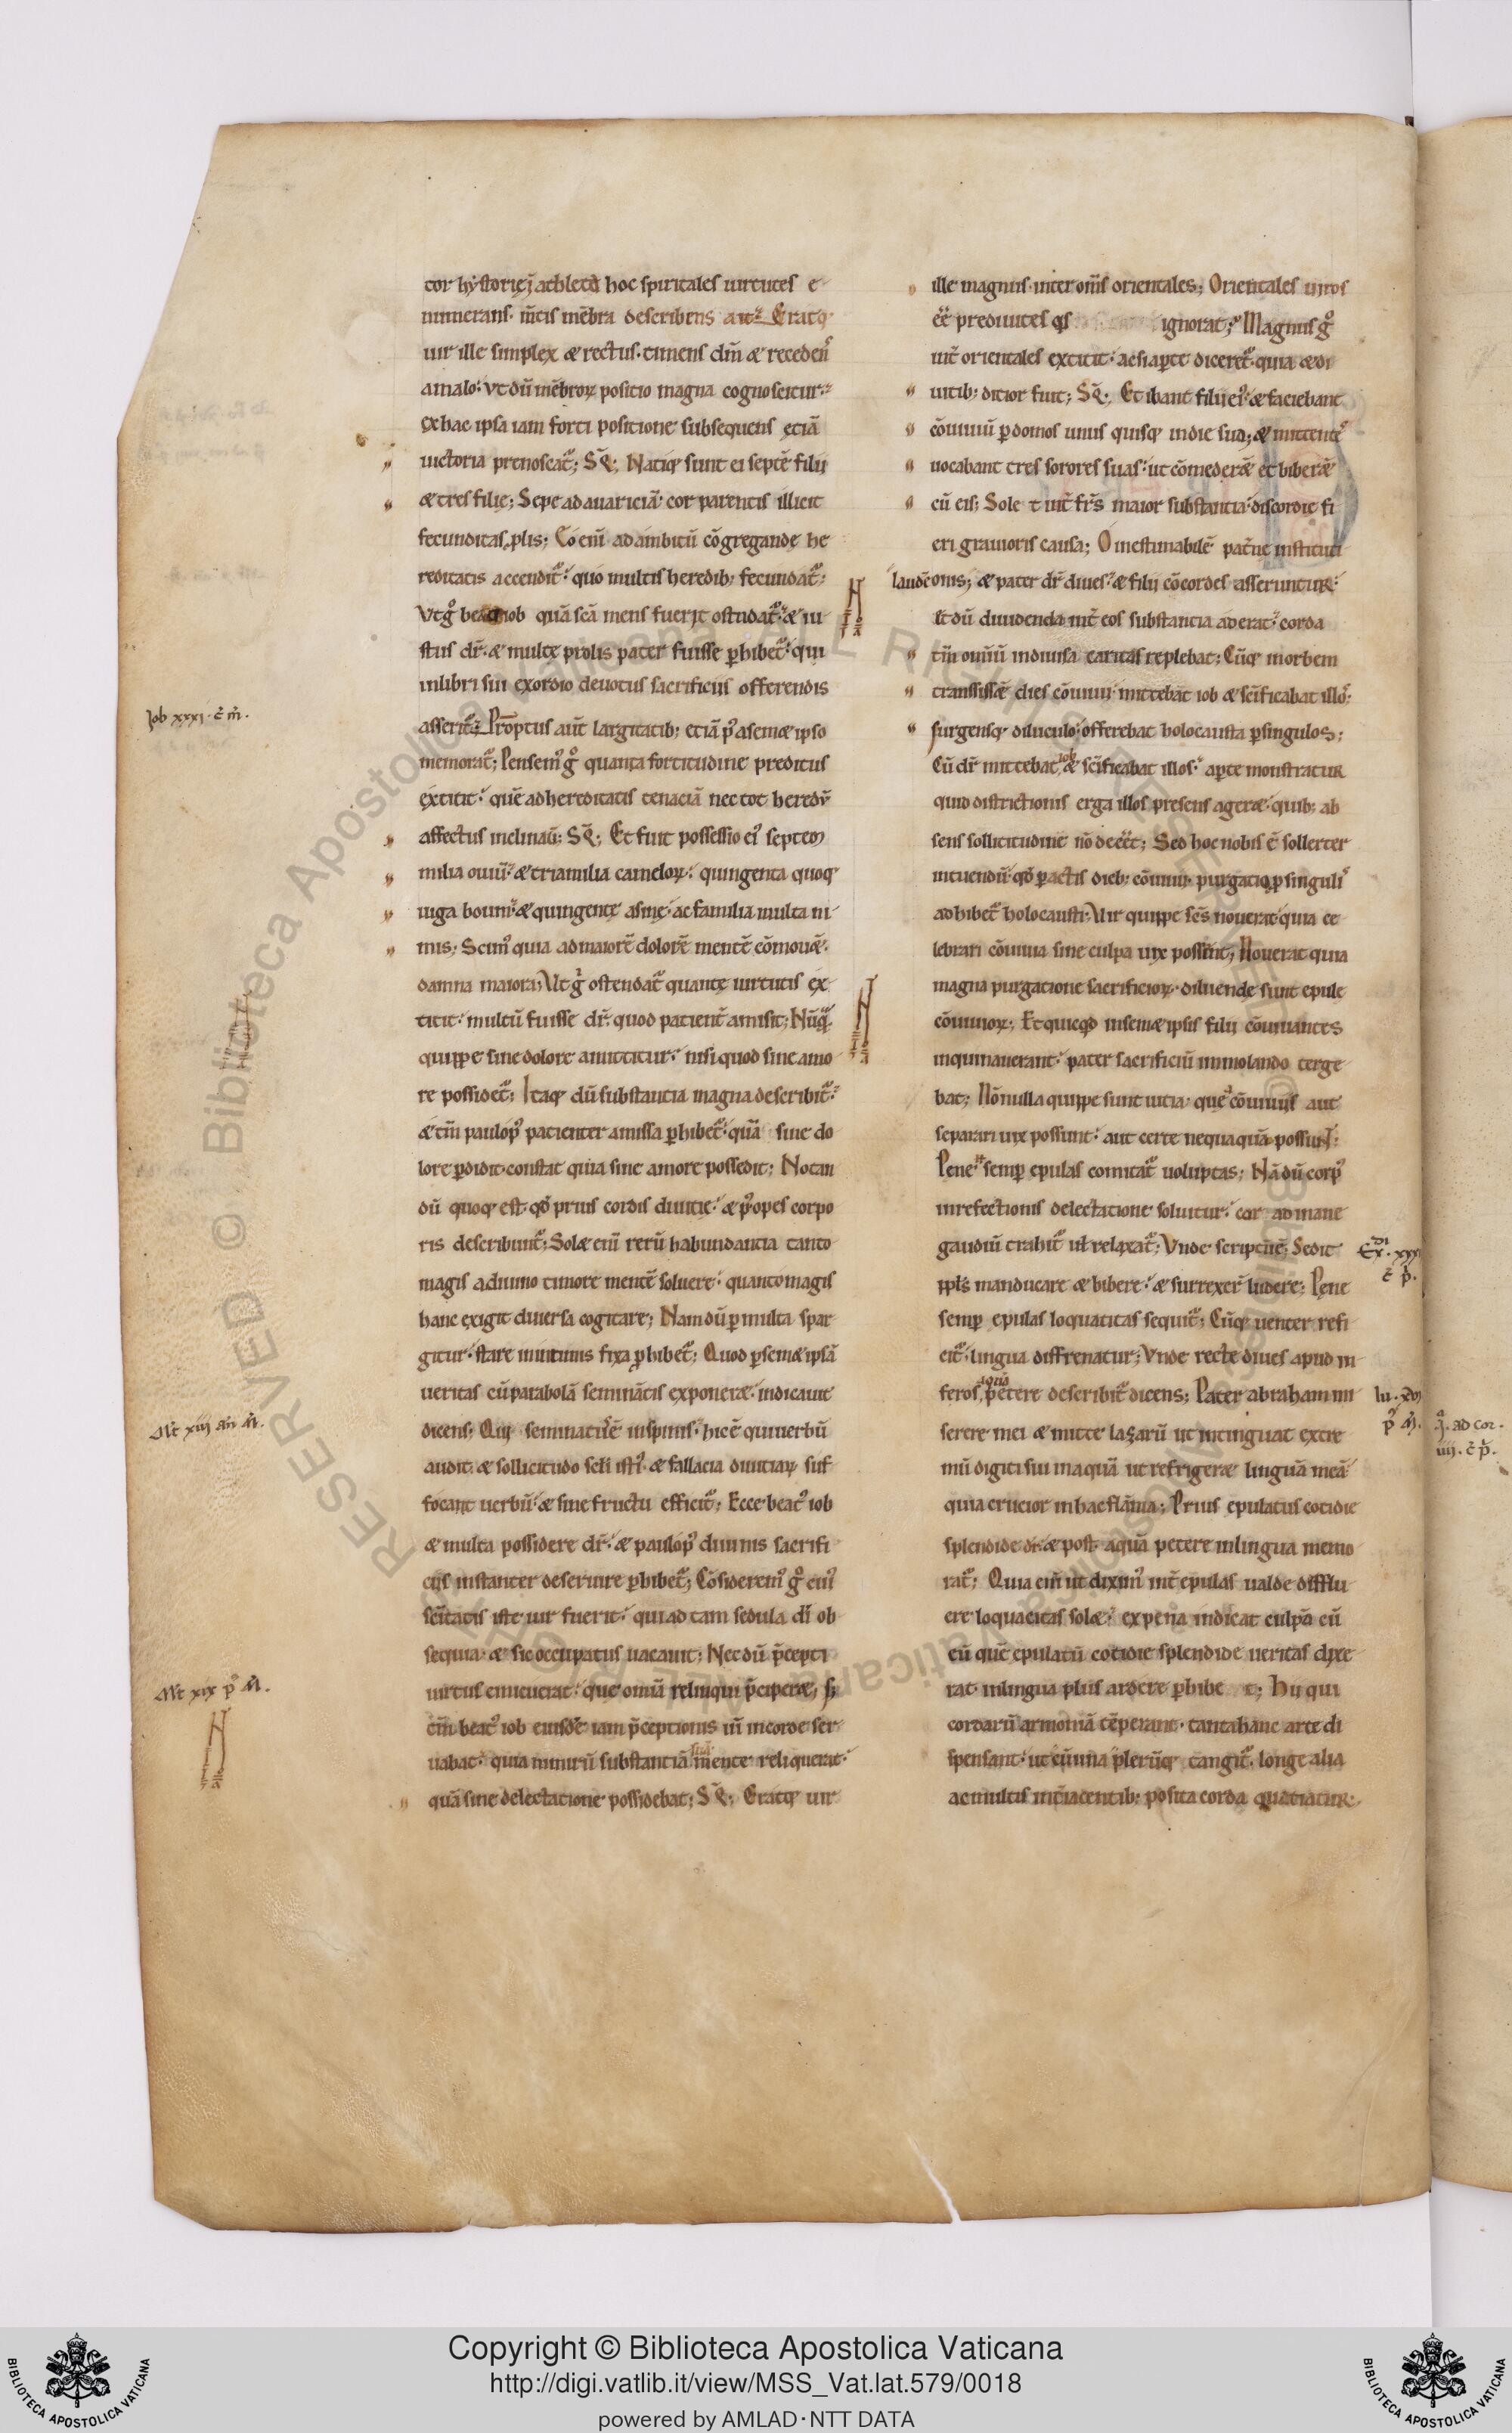 tor hystorięi athletę hoc spiritales uirtutes e
numerans. ut̄tis mēbra describens ait. Eratq;
uir ille simplex & rectus. timens dm̄ & recedens
a malo; Vt dū mēbroꝝ positio magna cognoscitur.
ex hac ipsa iam forti positione subsequens etiā
uictoria prenoscat᷑; SQ̄; Natiq; sunt ei septē filii
& tres filię; Sepe ad auariciā cor parentis illicit
fecunditas ꝓlis; Eo eni ad ambitū cōgregandę he
reditatis accendit᷑. quo multis heredib; fecundat᷑;
Vt gͦ beat iob quā scā mens fuerit ostēdat᷑. & iu
stus dr̄. & multę prolis pater fuisse ꝑhibet᷑. qui
in libri sui exordio deuotus sacrificiis offerendis
asserit᷑. Prōptus aut̄ largitatib; etiā pꝰ a sem& ipso
memorat᷑; Pensemꝰ gͦ quanta fortitudine preditus
extitit. quē ad hereditatis tenaciā nec tot heredū
affectus inclinaū; SQ̄; Et fuit possessio eiꝰ septem
milia ouiū. & tria milia cameloꝝ. quingenta quoq;
iuga boum. & quingentę asinę. ac familia multa ni
mis; Scimꝰ quia ad maiorē dolorē mentē cōmouēt
damna maiora; Vt gͦ ostendat᷑ quantę uirtutis ex
titit. multū fuisse dr̄. quod patient᷑ amisit; Nūq̄
quippe sine dolore amittitur. nisi quod sine amo
re possidet᷑; Itaq; dū substantia magna describit᷑.
& tm̄ paulopꝰ patienter amissa ꝑhibet᷑. quā sine do
lore ꝑdidit. constat quia sine amore possedit; Notan
dū quoq; est. qd̄ prius cordis diuitię. & pꝰ opes corpo
ris describunt᷑; Sol& eni rerū habundantia tanto
magis a diuino timore mentē soluere. quanto magis
hanc exigit diuersa cogitare; Nam dū ꝑ multa spar
gitur. stare in intimis fixa ꝑhibet᷑; Quod ꝑ sem& ipsā
ueritas cū parabolā seminātis exponer&. indicauit
dicens; Qui seminatus ē in spinis. hic ē qui uerbū
audit. & sollicitudo scl̄i istiꝰ & fallacia diuitiaꝝ suf
focant uerbū. & sine fructu efficit᷑; Ecce beatꝰ iob
& multa possidere dr̄. & paulopꝰ diuinis sacrifi
ciis instanter deseruire ꝑhibet᷑; Cōsideremꝰ gͦ cuiꝰ
scītatis iste uir fuerit. qui ad tam sedula di ob
sequia. & sic occupatus uacauit; Nec dū p̄cepti
uirtus emicuerat. quę omnia relinqui p̄ciper&; s;
tm̄ beatꝰ iob eiusdē iam p̄ceptionis uim in corde ser
uabat. quia nimirū substantiā suā mente reliquerat.
quā sine delectatione possidebat; SQ̄; Eratq; uir
ille magnus inter om̄s orientales; Orientales uiros
ee prediuites q̄s ignorat; Magnus gͦ
int᷑ orientales extitit. ac si aꝑte diceret᷑. quia & di
uitib; ditior fuit; SQ̄; Et ibant filii eiꝰ & faciebant
cōuiuiū ꝑ domos unus quisq; in die suo; & mittentes
uocabant tres sorores suas. ut cōmeder& et biber&
cū eis; Sole t int᷑ fr̄s maior substantia. discordię fi
eri grauioris causa; O inestimabilē pat᷑ne instituti
laudē onis; & pater dr̄ diues. & filii cōcordes asseruntur.
& dū diuidenda int᷑ eos substantia aderat. corda
tm̄ omniū indiuisa caritas replebat; Cūq; in orbem
transissē dies cōuiuii. mittebat iob & scīficabat illos.
surgensq; diluculo. offerebat holocausta ꝑ singulos;
Cū dr̄ mittebat iob & scīficabat illos. aꝑte monstratur
quid districtionis erga illos presens ager&. quib; ab
sens sollicitudine nō deēet; Sed hoc nobis ē sollerter
intuendū. qd̄ ꝑactis dieb; cōuiuii. purgatio ꝑ singulos
adhibet᷑ holocausti; Vir quippe scs̄ nouerat quia ce
lebrari cōuiuia sine culpa uix possent; Nouerat quia
magna purgatione sacrificioꝝ. diluendę sunt epulę
cōuiuioꝝ; Et quicqd in sem& ipsis filii cōuiuantes
inquinauerant. pater sacrificiū immolando terge
bat; Nōnulla quippe sunt uitia. que a cōuiuiis aut
separari uix possunt. aut certe nequaquā possunt;
Pene enim semꝑ epulas comitat᷑ uoluptas; Nā dū corpꝰ
in refectionis delectatione soluitur. cor ad inane
gaudiū trahit᷑ ul relaxat᷑; Vnde scriptū ē; Sedit
ppls manducare & bibere. & surrexer̄ ludere; Pene
semꝑ epulas loquacitas sequit᷑; Cūq; uenter refi
cit᷑. lingua diffrenatur; Vnde recte diues apud in
feros aquā petere describit᷑ dicens; Pater abraham mi
serere mei & mitte lazarū ut intinguat extre
mū digiti sui in aquā ut refriger& linguā meā
quia crucior in hac flāma; Prius epulatus cotidie
splendide dr̄. & post aquā petere in lingua memo
rat᷑; Quia eni ut diximꝰ int᷑ epulas ualde difflu
ere loquacitas sol&. ex pena indicat culpā cū
eū quē epulatū cotidie splendide ueritas dixe
rat. in lingua plus ardere ꝑhibe t; Hii qui
cordarū armoniā tēperant. tanta hanc arte di
spensant. ut cū una plerūq; tangit᷑. longe alia
ac multis int᷑iacentib; posita corda quatiatur.
Job xxxi. c̄ m̄.
Mt xiii
Mt xix
Ex. xxxii
lu. xvi
ad cor.
Copyright © Biblioteca Apostolica Vaticana
http://digi.vatlib.it/view/MSS_Vat.lat.579/0018
powered by AMLAD · NTT DATA
BIBLIOTECA APOSTOLICA VATICANA
BIBLIOTECA APOSTOLICA VATICANA